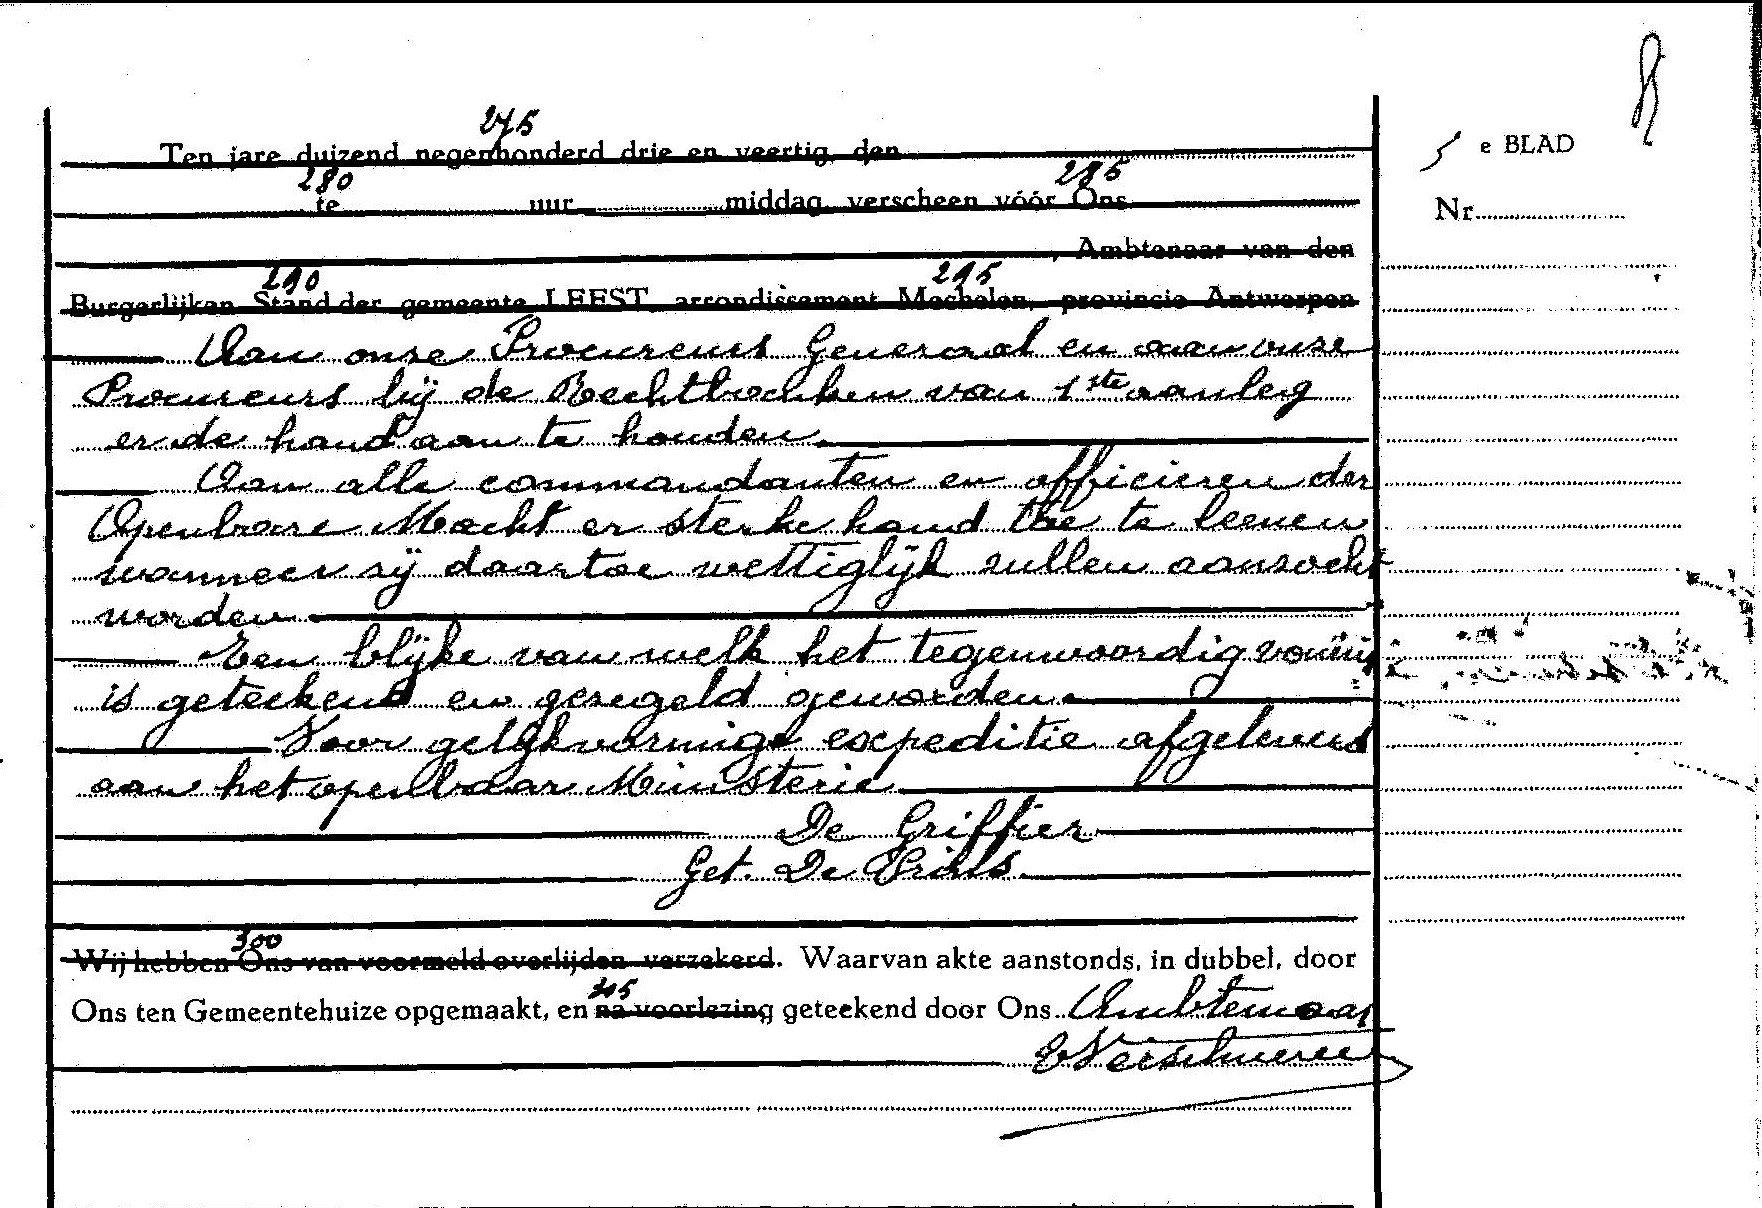 275
Ten jare duizend negenhonderd drie en veertig, den
5 e BLAD
280 285
te uur middag, verscheen vóór Ons
Nr
, Ambtenaar van den
290 295
Burgerlijken Stand der gemeente LEEST, arrondissement Mechelen, provincie Antwerpen
Aan onze Procureurs Generaal en aan onze
Procureurs bij de Rechtbanken van 1ste aanleg
er de hand aan te houden
Aan alle commandanten en officieren der
Openbare Macht er sterke hand toe te leenen
wanneer zij daartoe wettiglijk zullen aanzocht
worden
Een blijke van welk het tegenwoordig vonnis
is geteekend en gezegeld geworden.
Voor gelijkvormige expeditie afgeleverd
aan het openbaar Ministerie
De Griffier
Get. De Prins
300
Wij hebben Ons van voormeld overlijden verzekerd. Waarvan akte aanstonds, in dubbel, door
305
Ons ten Gemeentehuize opgemaakt, en na voorlezing geteekend door Ons Ambtenaar